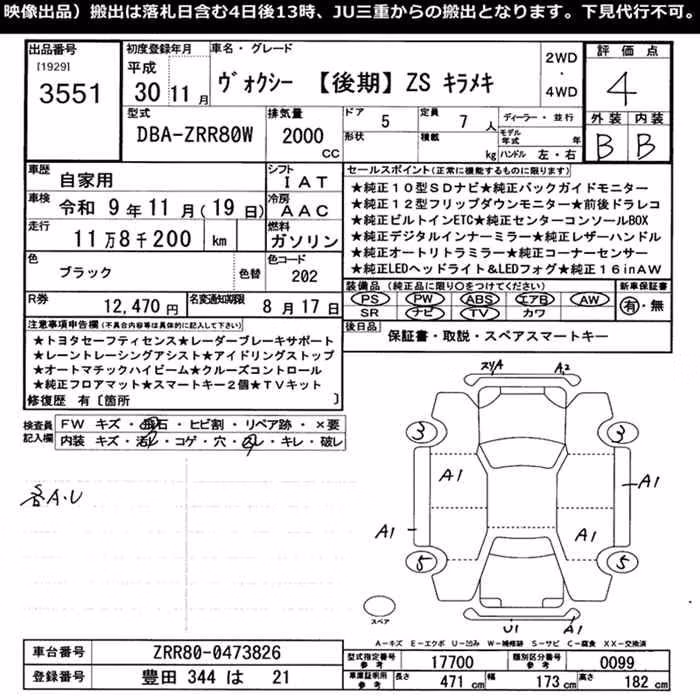 映像出品）搬出は落札日含む4日後13時、JU三重からの搬出となります。下見代行不可。
出品番号
[1929]
3551
初度登録年月
平成
30 11 月
車名・グレード
ヴォクシー 【後期】ZS キラメキ
2WD
・
4WD
評価点
4
外装 内装
B B
型式
DBA-ZRR80W
排気量
2000
CC
ドア
5
定員
7 人
形状
積載
kg
ディーラー・並行
モデル年式 年
ハンドル 左・右
車歴
自家用
シフト
IAT
車検
令和 9年 11月(19日)
冷房
AAC
走行
11万8千200 km
燃料
ガソリン
色
ブラック
色替
色コード
202
R券
12,470円
名変通知期限
8月17日
セールスポイント(正常に機能するものに限ります)
★純正10型SDナビ★純正バックガイドモニター
★純正12型フリップダウンモニター★前後ドラレコ
★純正ビルトインETC★純正センターコンソールBOX
★純正デジタルインナーミラー★純正レザーハンドル
★純正オートリトラミラー★純正コーナーセンサー
★純正LEDヘッドライト&LEDフォグ★純正16inAW
装備品（純正品に限り○をつけてください）
PS PW ABS エアB AW
SR ナビ TV カワ
新車保証書
有・無
後日品
保証書・取説・スペアスマートキー
注意事項申告欄(不具合内容等は具体的に記入して下さい)
★トヨタセーフティセンス★レーダーブレーキサポート
★レーントレーシングアシスト★アイドリングストップ
★オートマチックハイビーム★クルーズコントロール
★純正フロアマット★スマートキー2個★TVキット
修復歴 有〔箇所 〕
検査員記入欄
FW キズ・飛石・ヒビ割・リペア跡・×要
内装 キズ・汚レ・コゲ・穴・スレ・キレ・破レ
各A・U
A2
3
3
A1
A1
A1
A1
5
5
スペア
U1
A1
A－キズ E－エクボ U－凹み W－補修跡 S－サビ C－腐食 XX－交換済
車台番号
ZRR80-0473826
登録番号
豊田 344 は 21
型式指定番号
参考
17700
類別区分番号
参考
0099
車庫証明用
参考
長さ
471 cm
幅
173 cm
高さ
182 cm